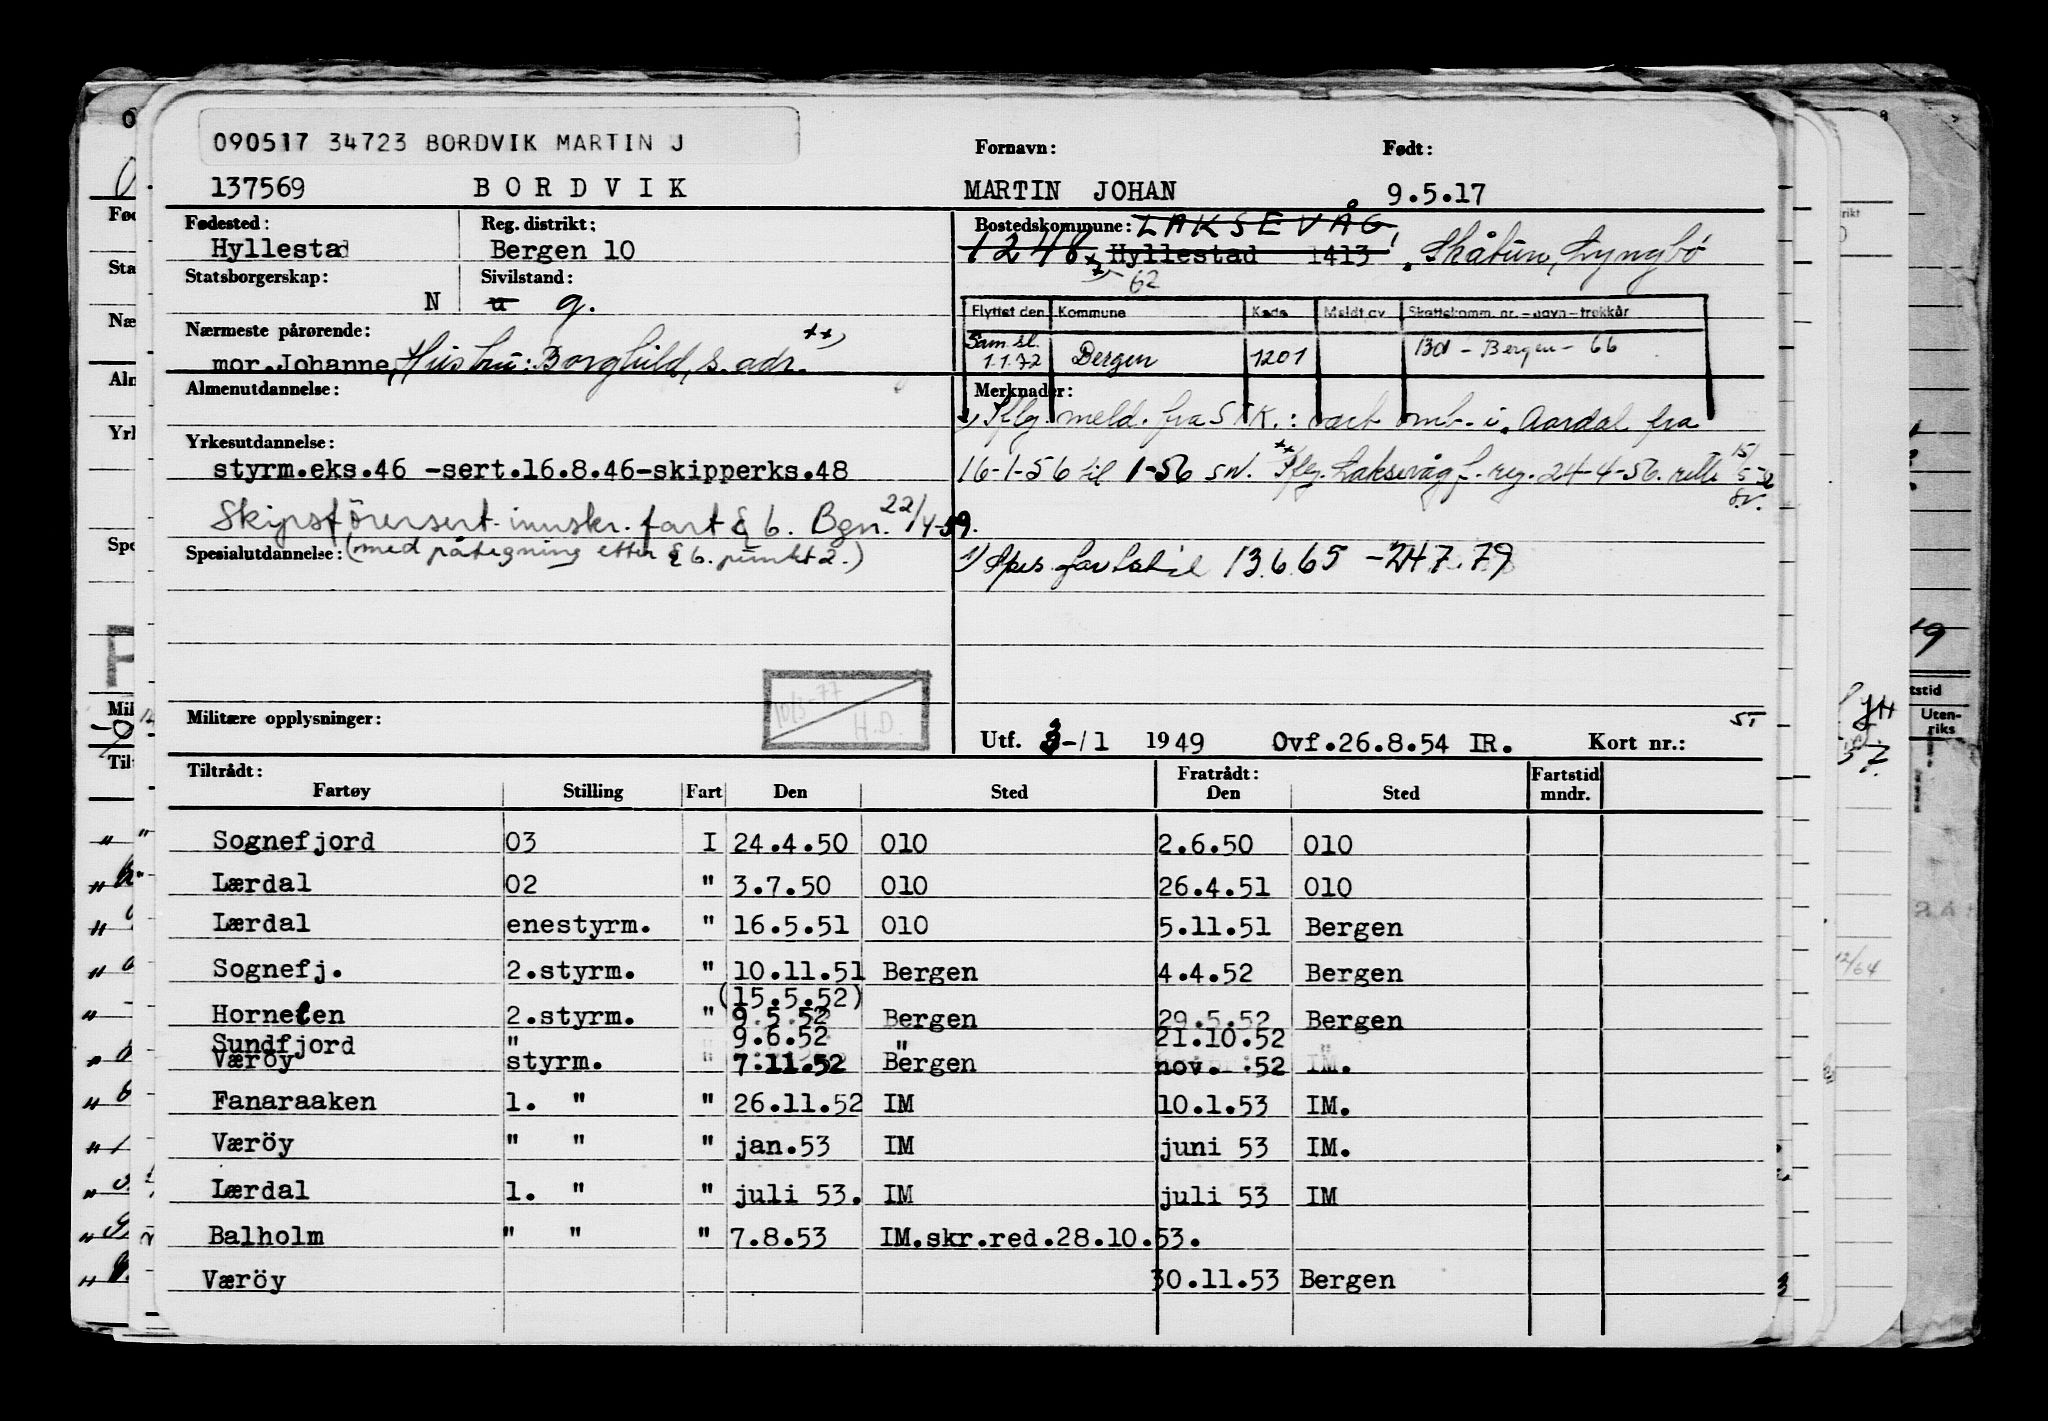 090517 34723 BORDVIK MARTIN J
Fornavn: Født:
137569 BORDVIK MARTIN JOHAN 9.5.17
Fødested: Reg. distrikt: Bostedskommune: LAKSEVÅG
Hyllestad Bergen 10 1248 Hyllestad 1413 Skåtun, Lyngbö
Statsborgerskap: Sivilstand: 62
N u g.
Flyttet den Kommune Kode Meldt av Skattekomm. nr. – navn – trekkår
Sam.sl. 1.1.72 Bergen 1201 1301 - Bergen - 66
Nærmeste pårørende:
mor Johanne, Hustru: Borghild, s. adr. ++)
Almenutdannelse: Merknader:
Iflg. meld. fra STK.: vært omb. i Aardal fra
Yrkesutdannelse:
styrm.eks.46 -sert.16.8.46-skipperks.48 16-1-56 til 1-56 SN. ++ Iflg. Laksevåg f. reg. 24-4-56.
Skipsförersert. innskr. fart § 6. Bgn. 22/4-59.
Spesialutdannelse: (med påtegning etter § 6. punkt 2.)
13.6.65 - 24.7.79
10/3-77 H.D.
Militære opplysninger:
Utf. 3-/1 1949 Ovf.26.8.54 IR. Kort nr.:
Tiltrådt: Fratrådt: Fartstid
Fartøy Stilling Fart Den Sted Den Sted mndr.
Sognefjord 03 I 24.4.50 010 2.6.50 010
Lærdal 02 " 3.7.50 010 26.4.51 010
Lærdal enestyrm. " 16.5.51 010 5.11.51 Bergen
Sognefj. 2.styrm. " 10.11.51 Bergen 4.4.52 Bergen
(15.5.52)
Hornelen 2.styrm. " 9.5.52 Bergen 29.5.52 Bergen
Sundfjord " 9.6.52 " 21.10.52 "
Væröy styrm. " 7.11.52 Bergen nov. 52 IM.
Fanaraaken 1. " " 26.11.52 IM 10.1.53 IM.
Væröy " " " jan.53 IM juni 53 IM.
Lærdal 1. " " juli 53. IM juli 53 IM
Balholm " " " 7.8.53 IM.skr.red.28.10.53.
Væröy 30.11.53 Bergen